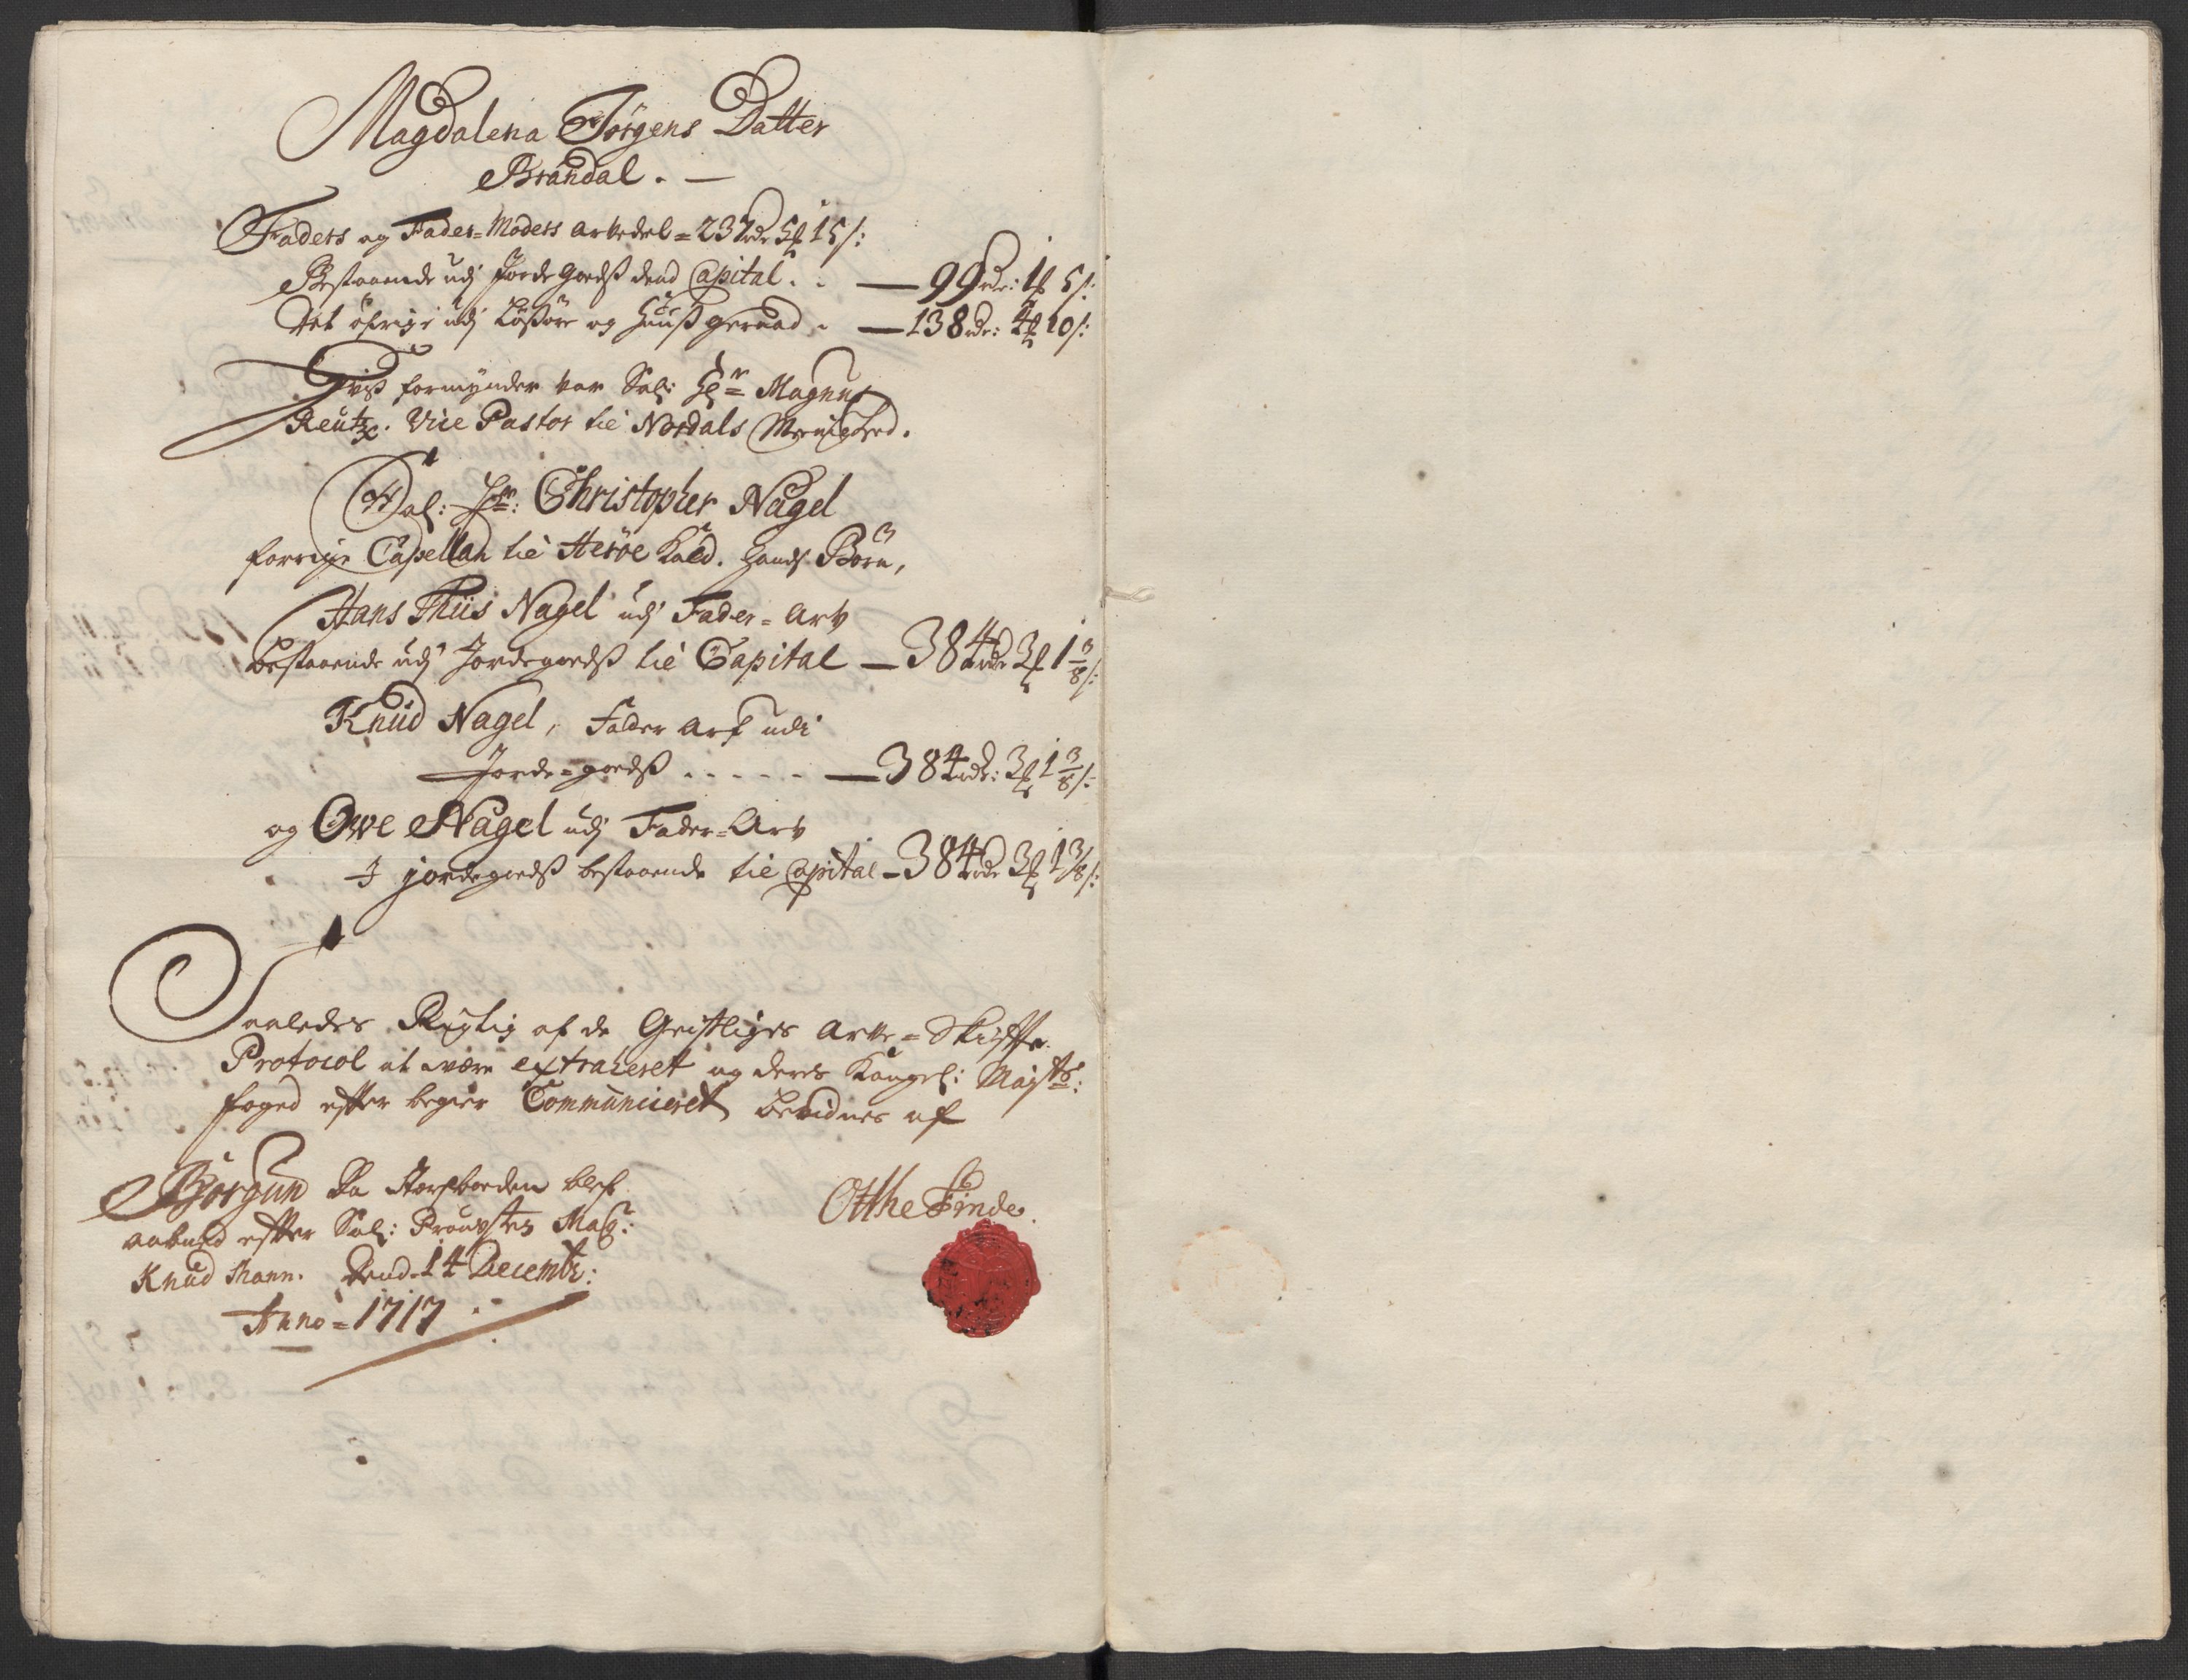 Magdalena Jörgens Datter
Brandal. —
Faders og Fader-Moders Arvedel = 237 rdr 5 ß 15 /:
Bestaaende udj Jorde goedß dend Capital . . — 99 rdr: 1 ß 5 /:
Det öfrige udj Lößöre og Huuß geraad . — 138 rdr: 4 ß 10 /:
Hviß formynder var Sal: Hr Magnus
Reutz. Vice Pastor til Nordals Menighed.
Sal: Hr: Christopher Nagel
forrige Capellan til Heröe Kald. hands Börn,
Hans Thiis Nagel udj Fader-Arv
bestaaende udj Jordegoedß til Capital — 384 rdr 3 ß 1 3/8 /:
Knud Nagel, Fader Arf udi
Jorde-goedß . . . . . — 384 rdr: 3 ß 1 3/8 /:
og Owe Nagel udj Fader-Arv
I jordegoedß bestaaende til Capital — 384 rdr 3 ß 1 3/8 /:
Saaledes Rigtig af de Geistliges Arve-Skiffte
Protocol at være extraheret og deres Kongel: Mayts:
foged effter begier Communiceret bevidnes af
Borgun Da Storfborden blef
aabned effter Sal: Proustes Mag:
Knud Thann. Dend 14 Decembr:
Anno = 1717
Otthe Finde.